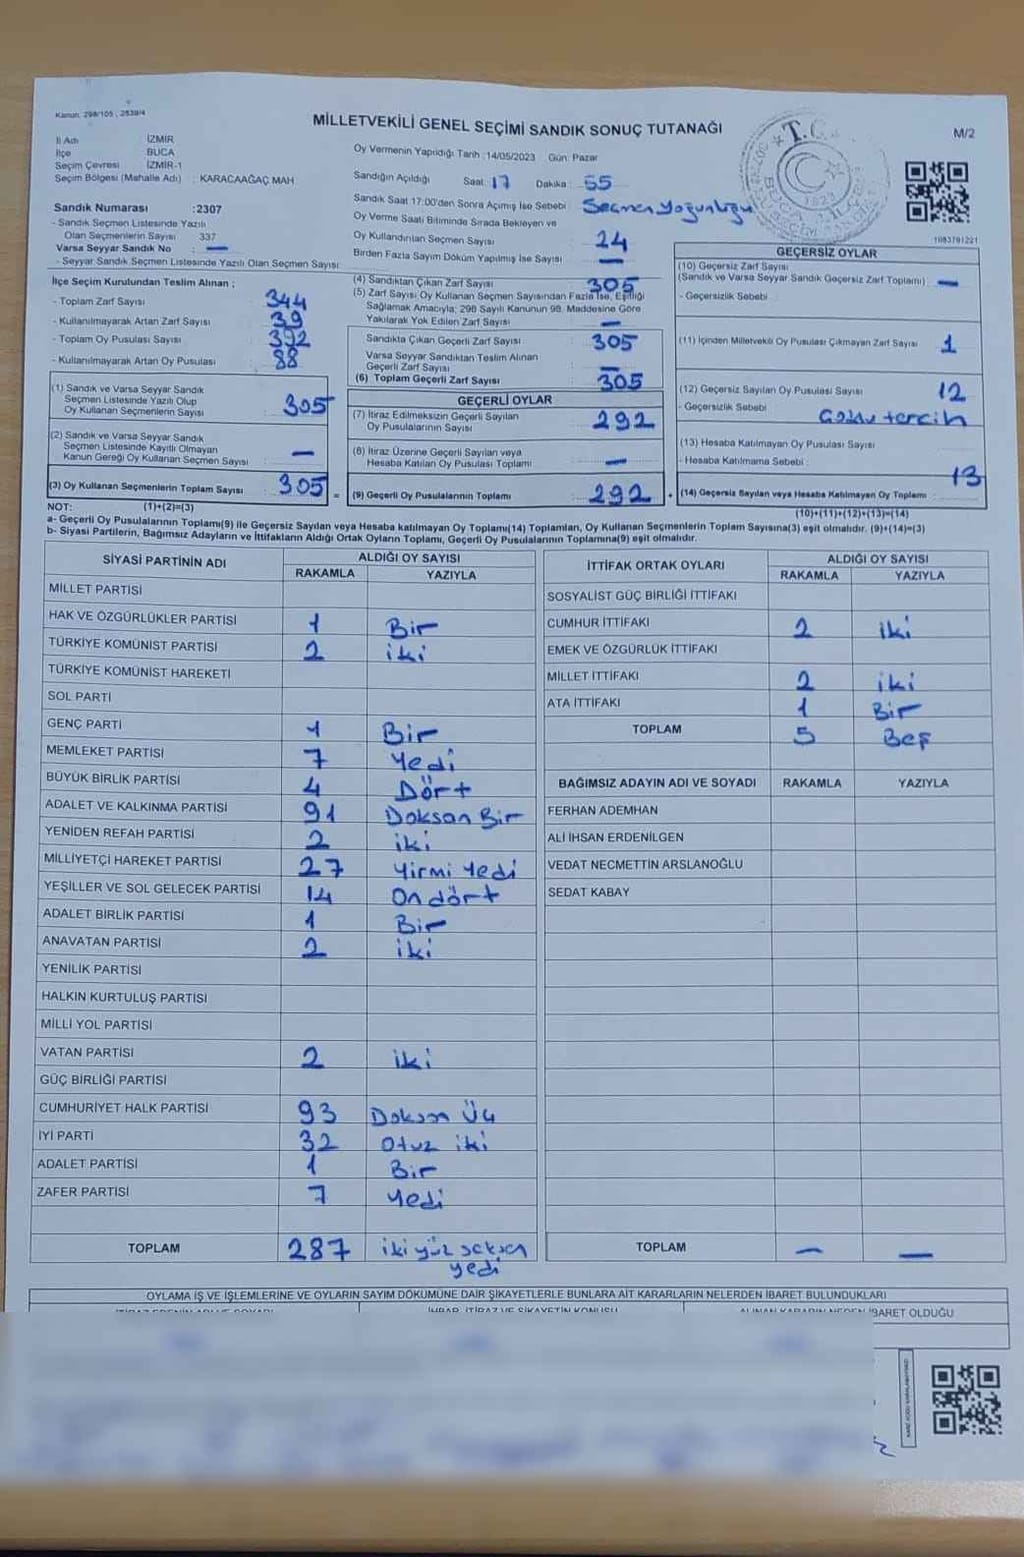 Kanun: 298/105 , 2839/4
MİLLETVEKİLİ GENEL SEÇİMİ SANDIK SONUÇ TUTANAĞI
M/2
İl Adı İZMİR
İlçe BUCA
Seçim Çevresi İZMİR-1
Seçim Bölgesi (Mahalle Adı) : KARACAAĞAÇ MAH
Sandık Numarası :2307
- Sandık Seçmen Listesinde Yazılı
Olan Seçmenlerin Sayısı 337
Varsa Seyyar Sandık No : —
- Seyyar Sandık Seçmen Listesinde Yazılı Olan Seçmen Sayısı:
İlçe Seçim Kurulundan Teslim Alınan ;
- Toplam Zarf Sayısı 344
- Kullanılmayarak Artan Zarf Sayısı 39
- Toplam Oy Pusulası Sayısı 392
- Kullanılmayarak Artan Oy Pusulası 88
(1) Sandık ve Varsa Seyyar Sandık
Seçmen Listesinde Yazılı Olup
Oy Kullanan Seçmenlerin Sayısı 305
(2) Sandık ve Varsa Seyyar Sandık
Seçmen Listesinde Kayıtlı Olmayan
Kanun Gereği Oy Kullanan Seçmen Sayısı —
(3) Oy Kullanan Seçmenlerin Toplam Sayısı : 305 =
Oy Vermenin Yapıldığı Tarih :14/05/2023 Gün: Pazar
Sandığın Açıldığı Saat: 17 Dakika : 55
Sandık Saat 17:00'den Sonra Açımış İse Sebebi : Seçmen yoğunluğu
Oy Verme Saati Bitiminde Sırada Bekleyen ve
Oy Kullandırılan Seçmen Sayısı : 24
Birden Fazla Sayım Döküm Yapılmış İse Sayısı : —
(4) Sandıktan Çıkan Zarf Sayısı : 305
(5) Zarf Sayısı Oy Kullanan Seçmen Sayısından Fazla İse, Eşitliği
Sağlamak Amacıyla; 298 Sayılı Kanunun 98. Maddesine Göre
Yakılarak Yok Edilen Zarf Sayısı : —
Sandıkta Çıkan Geçerli Zarf Sayısı : 305
Varsa Seyyar Sandıktan Teslim Alınan
Geçerli Zarf Sayısı : —
(6) Toplam Geçerli Zarf Sayısı : 305
GEÇERLİ OYLAR
(7) İtiraz Edilmeksizin Geçerli Sayılan
Oy Pusulalarının Sayısı : 292
(8) İtiraz Üzerine Geçerli Sayılan veya
Hesaba Katılan Oy Pusulası Toplamı : —
(9) Geçerli Oy Pusulalarının Toplamı : 292 +
1083791221
GEÇERSİZ OYLAR
(10) Geçersiz Zarf Sayısı
(Sandık ve Varsa Seyyar Sandık Geçersiz Zarf Toplamı) : —
- Geçersizlik Sebebi :
(11) İçinden Milletvekili Oy Pusulası Çıkmayan Zarf Sayısı : 1
(12) Geçersiz Sayılan Oy Pusulası Sayısı : 12
- Geçersizlik Sebebi : Çoklu tercih
(13) Hesaba Katılmayan Oy Pusulası Sayısı :
- Hesaba Katılmama Sebebi :
(14) Geçersiz Sayılan veya Hesaba Katılmayan Oy Toplamı : 13
NOT: (1)+(2)=(3) (10)+(11)+(12)+(13)=(14)
a- Geçerli Oy Pusulalarının Toplamı(9) ile Geçersiz Sayılan veya Hesaba katılmayan Oy Toplamı(14) Toplamları, Oy Kullanan Seçmenlerin Toplam Sayısına(3) eşit olmalıdır. (9)+(14)=(3)
b- Siyasi Partilerin, Bağımsız Adayların ve İttifakların Aldığı Ortak Oyların Toplamı, Geçerli Oy Pusulalarının Toplamına(9) eşit olmalıdır.
SİYASİ PARTİNİN ADI ALDIĞI OY SAYISI
RAKAMLA YAZIYLA
MİLLET PARTİSİ
HAK VE ÖZGÜRLÜKLER PARTİSİ 1 Bir
TÜRKİYE KOMÜNİST PARTİSİ 2 iki
TÜRKİYE KOMÜNİST HAREKETİ
SOL PARTİ
GENÇ PARTİ 1 Bir
MEMLEKET PARTİSİ 7 Yedi
BÜYÜK BİRLİK PARTİSİ 4 Dört
ADALET VE KALKINMA PARTİSİ 91 Doksan Bir
YENİDEN REFAH PARTİSİ 2 iki
MİLLİYETÇİ HAREKET PARTİSİ 27 Yirmi Yedi
YEŞİLLER VE SOL GELECEK PARTİSİ 14 On dört
ADALET BİRLİK PARTİSİ 1 Bir
ANAVATAN PARTİSİ 2 iki
YENİLİK PARTİSİ
HALKIN KURTULUŞ PARTİSİ
MİLLİ YOL PARTİSİ
VATAN PARTİSİ 2 iki
GÜÇ BİRLİĞİ PARTİSİ
CUMHURİYET HALK PARTİSİ 93 Doksan Üç
İYİ PARTİ 32 Otuz iki
ADALET PARTİSİ 1 Bir
ZAFER PARTİSİ 7 Yedi
TOPLAM 287 iki yüz seksen
yedi
İTTİFAK ORTAK OYLARI ALDIĞI OY SAYISI
RAKAMLA YAZIYLA
SOSYALİST GÜÇ BİRLİĞİ İTTİFAKI
CUMHUR İTTİFAKI 2 iki
EMEK VE ÖZGÜRLÜK İTTİFAKI
MİLLET İTTİFAKI 2 iki
ATA İTTİFAKI 1 Bir
TOPLAM 5 Beş
BAĞIMSIZ ADAYIN ADI VE SOYADI RAKAMLA YAZIYLA
FERHAN ADEMHAN
ALİ İHSAN ERDENİLGEN
VEDAT NECMETTİN ARSLANOĞLU
SEDAT KABAY
TOPLAM — —
OYLAMA İŞ VE İŞLEMLERİNE VE OYLARIN SAYIM DÖKÜMÜNE DAİR ŞİKAYETLERLE BUNLARA AİT KARARLARIN NELERDEN İBARET BULUNDUKLARI
İHBAR, İTİRAZ VE ŞİKAYETİN KONUSU ALINAN KARARIN NEDEN İBARET OLDUĞU